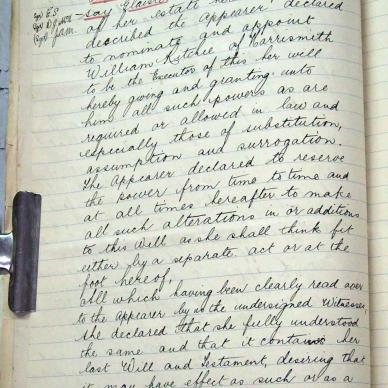 (sgd) E.S.
(sgd) D.J.
(sgd) J.a.m.
say
of her estate declared
described the Appearer declared
to nominate and appoint
William Ritchie of Harrismith
to be the Executor of this her will
hereby giving and granting unto
him all such powers as are
required or allowed in law and
especially those of substitution,
assumption and surrogation.
The Appearer declared to reserve
the power from time to time and
at all times hereafter to make
all such alterations in or additions
to this Will as she shall think fit
either by a separate act or at the
foot hereof.
All which having been clearly read over
to the Appearer by us the undersigned Witnesses,
she declared that she fully understood
the same and that it contains her
last Will and Testament, desiring that
it may have effect as such or as a